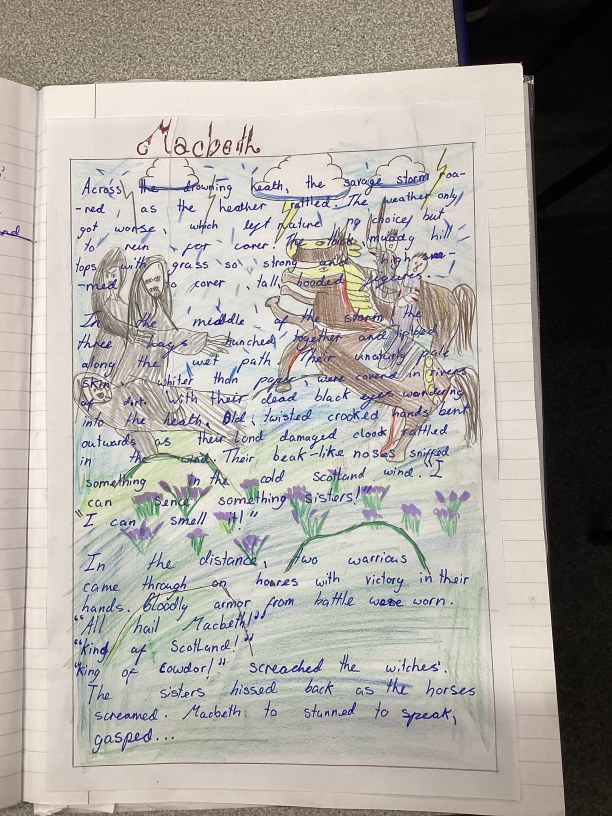 Macbeth
Across the drowning heath, the savage storm roa-
-red, as the heather rattled. The weather only
got worse, which left nature no choice but
to run for cover. The thick, muddy hill
tops with grass so strong and high see-
-med to cover tall, hooded figures.
In the meddle of the storm, the
three hags hunched together and
along the wet path. Their unaturly pale
skin, whiter than paper, were coverd in rivers
of dirt. With their dead black eyes wandering
into the heath. Old, twisted crooked hands bent
outwards as their and damaged cloak rattled
in the wind. Their beak-like noses sniffed
something in the cold Scotland wind. "I
"can sence something sisters!"
"I can smell it!"
In the distance, two warrious
came through on hoares with victory in their
hands. Bloodly armor from battle were worn.
"All hail Macbeth!"
"King of Scotland!"
"King of Cowdor!" screached the witches.
The sisters hissed back as the horses
screamed. Macbeth to stunned to speak,
gasped...